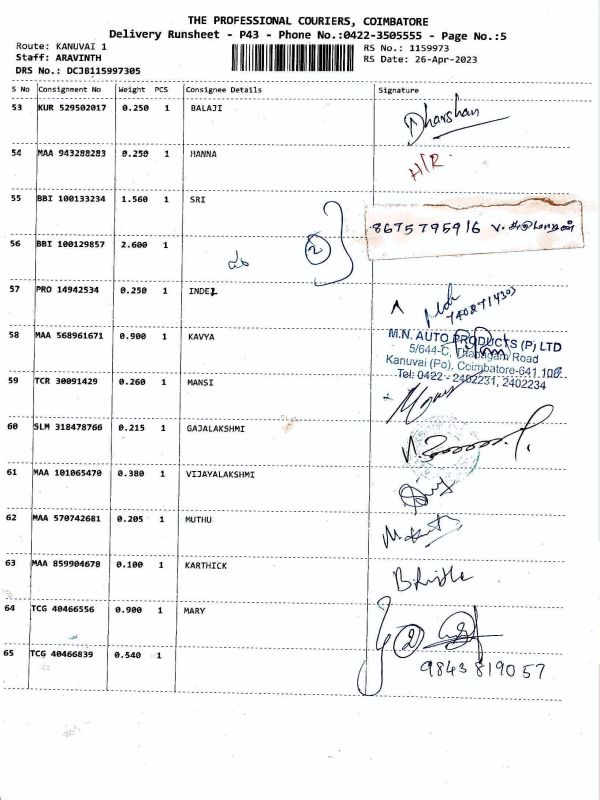 THE PROFESSIONAL COURIERS, COIMBATORE
Delivery Runsheet - P43 - Phone No.:0422-3505555 - Page No.:5
Route: KANUVAI 1
RS No.: 1159973
Staff: ARAVINTH
RS Date: 26-Apr-2023
DRS No.: DCJB115997305
S No Consignment No Weight PCS Consignee Details Signature
53 KUR 529502017 0.250 1 BALAJI Dharshan
54 MAA 943288283 0.250 1 HANNA H/R.
55 BBI 100133234 1.560 1 SRI
8675795916
56 BBI 100129857 2.600 1 2
57 PRO 14942534 0.250 1 INDEZ
7408714303
58 MAA 568961671 0.900 1 KAVYA
M.N. AUTO PRODUCTS (P) LTD
5/644-C, Thadagam Road
Kanuvai (Po), Coimbatore-641 108
Tel: 0422 - 2402231, 2402234
59 TCR 30091429 0.260 1 MANSI
60 SLM 318478766 0.215 1 GAJALAKSHMI
61 MAA 101065470 0.380 1 VIJAYALAKSHMI
62 MAA 570742681 0.205 1 MUTHU
63 MAA 859904678 0.100 1 KARTHICK
64 TCG 40466556 0.900 1 MARY 2
65 TCG 40466839 0.540 1
9843819057